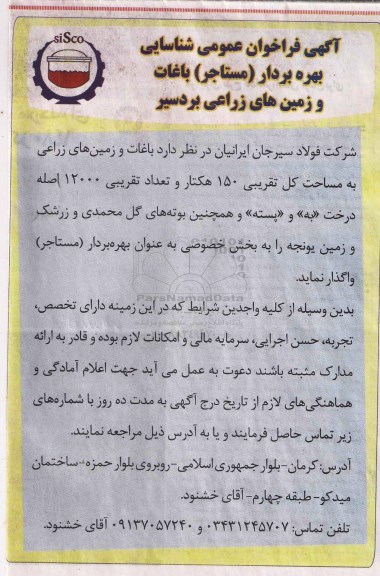 siSco
آگهی فراخوان عمومی شناسایی
بهره بردار (مستاجر) باغات
و زمین های زراعی بردسیر
شرکت فولاد سیرجان ایرانیان در نظر دارد باغات و زمین‌های زراعی
به مساحت کل تقریبی ۱۵۰ هکتار و تعداد تقریبی ۱۲۰۰۰ اصله
درخت «به» و «پسته» و همچنین بوته‌های گل محمدی و زرشک
و زمین یونجه را به بخش خصوصی به عنوان بهره‌بردار (مستاجر)
واگذار نماید.
ParsNamadData
بدین وسیله از کلیه واجدین شرایط که در این زمینه دارای تخصص،
تجربه، حسن اجرایی، سرمایه مالی و امکانات لازم بوده و قادر به ارائه
مدارک مثبته باشند دعوت به عمل می آید جهت اعلام آمادگی و
هماهنگی‌های لازم از تاریخ درج آگهی به مدت ده روز با شماره‌های
زیر تماس حاصل فرمایند و یا به آدرس ذیل مراجعه نمایند.
آدرس: کرمان-بلوار جمهوری اسلامی-روبروی بلوار حمزه-ساختمان
میدکو- طبقه چهارم- آقای خشنود.
تلفن تماس: ۰۳۴۳۱۲۴۵۷۰۷ و ۰۹۱۳۷۰۵۷۲۴۰ آقای خشنود.